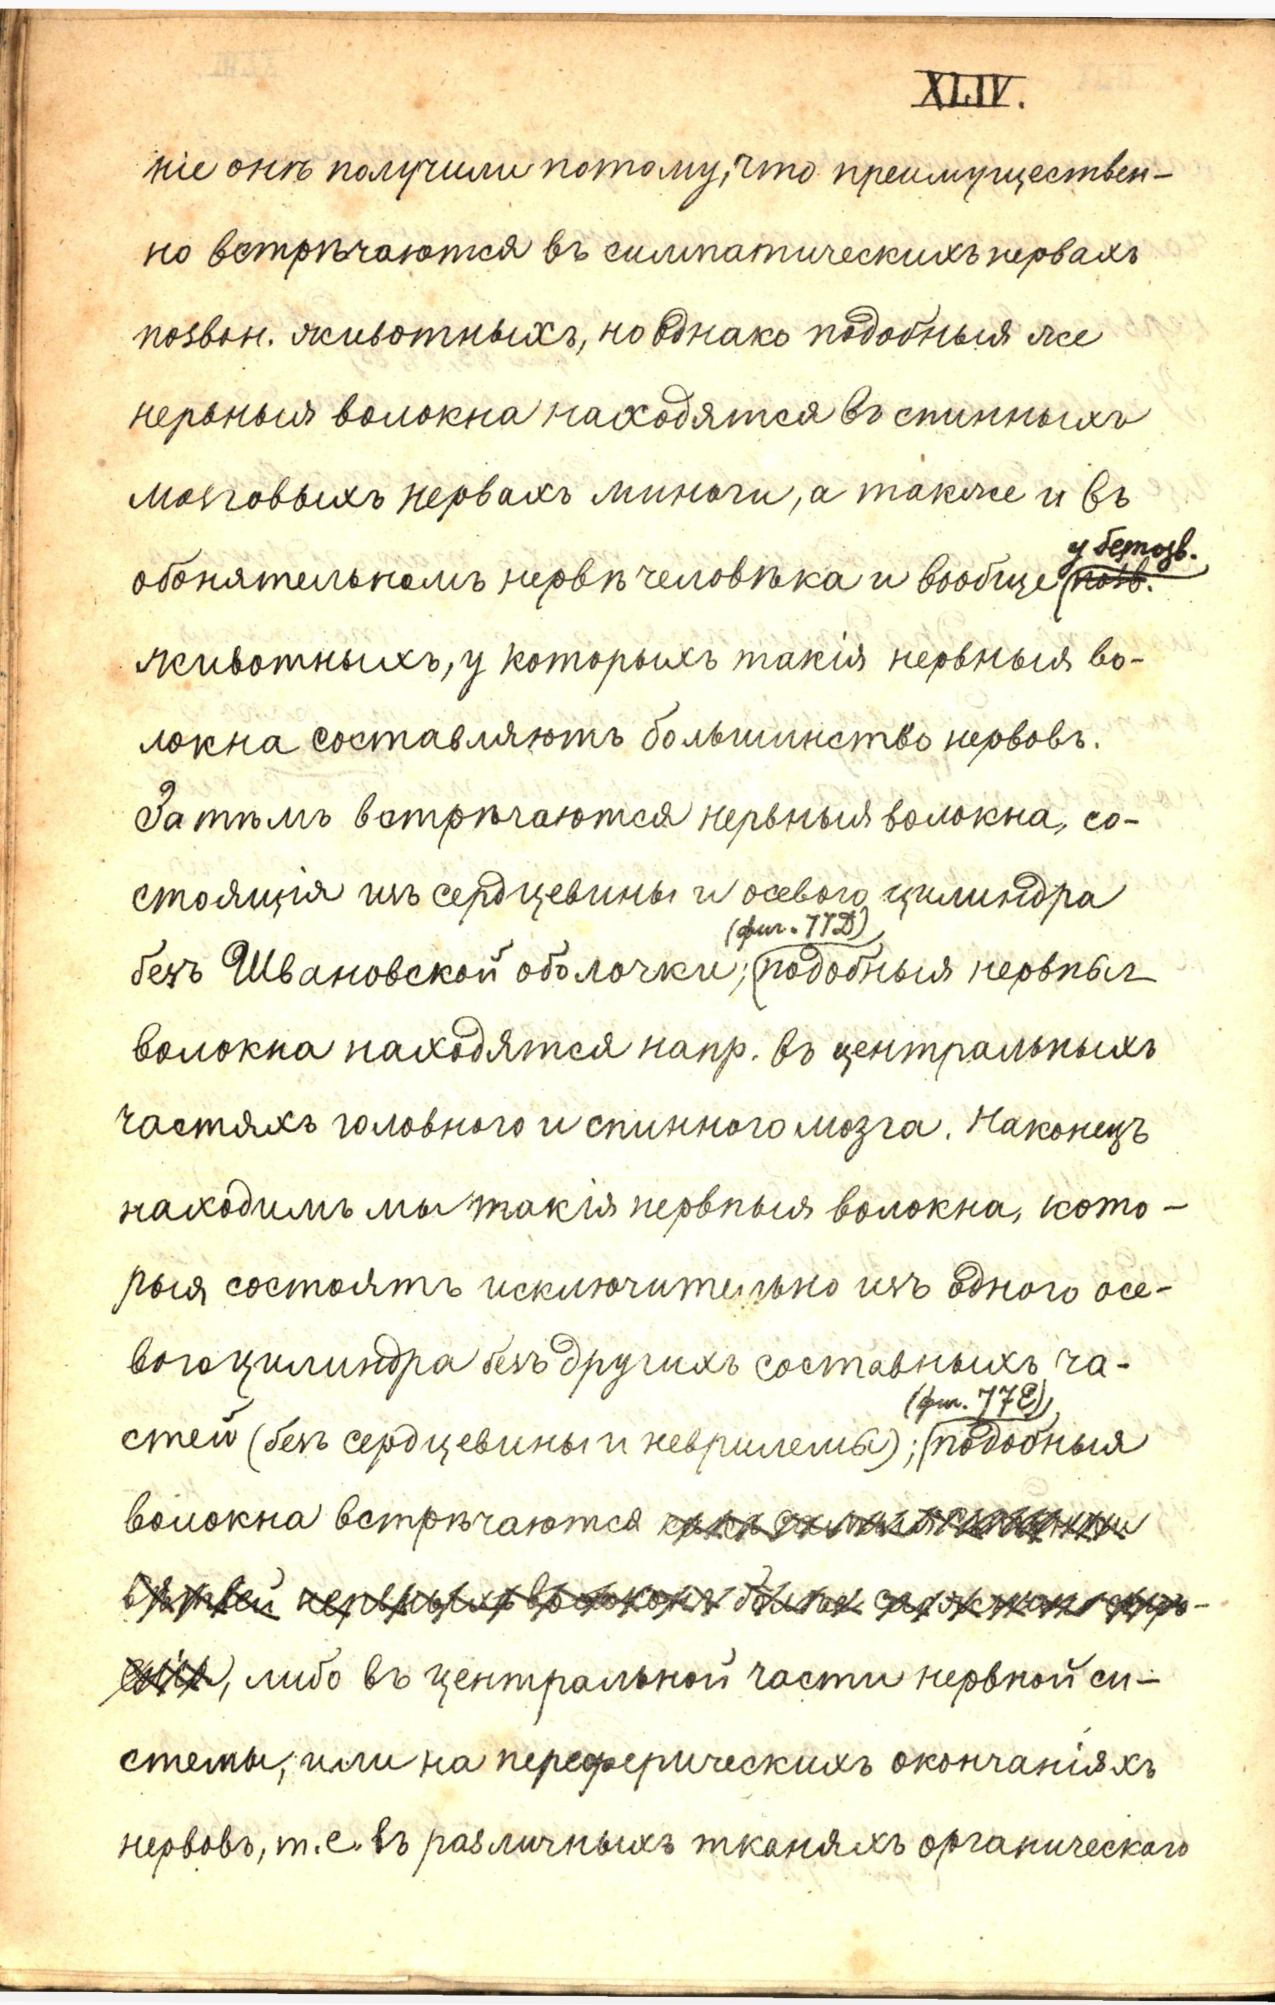 XLIV.
ніе онѣ получили потому, что преимуществен-
но встрѣчаются въ симпатическихъ нервахъ
позвон. животныхъ, но однако подобныя же
нервныя волокна находятся въ спинныхъ
мозговыхъ нервахъ миноги, а также и въ
у безпозв.
обонятельномъ нервѣ человѣка и вообще позв.
животныхъ, у которыхъ такія нервныя во-
локна составляютъ большинство нервовъ.
Затѣмъ встрѣчаются нервныя волокна, со-
стоящія изъ сердцевины и осеваго цилиндра
(фиг. 77D)
безъ Швановской оболочки; подобныя нервныя
волокна находятся напр. въ центральныхъ
частяхъ головного и спинного мозга. Наконецъ
находимъ мы такія нервныя волокна, кото-
рыя состоятъ исключительно изъ одного осе-
вого цилиндра безъ другихъ составныхъ ча-
(фиг. 77E)
стей (безъ сердцевины и неврилемы); подобныя
волокна встрѣчаются
вѣтвей нервныхъ волоконъ болѣе
, либо въ центральной части нервной си-
стемы, или на переферическихъ окончаніяхъ
нервовъ, т.е. въ различныхъ тканяхъ органическаго